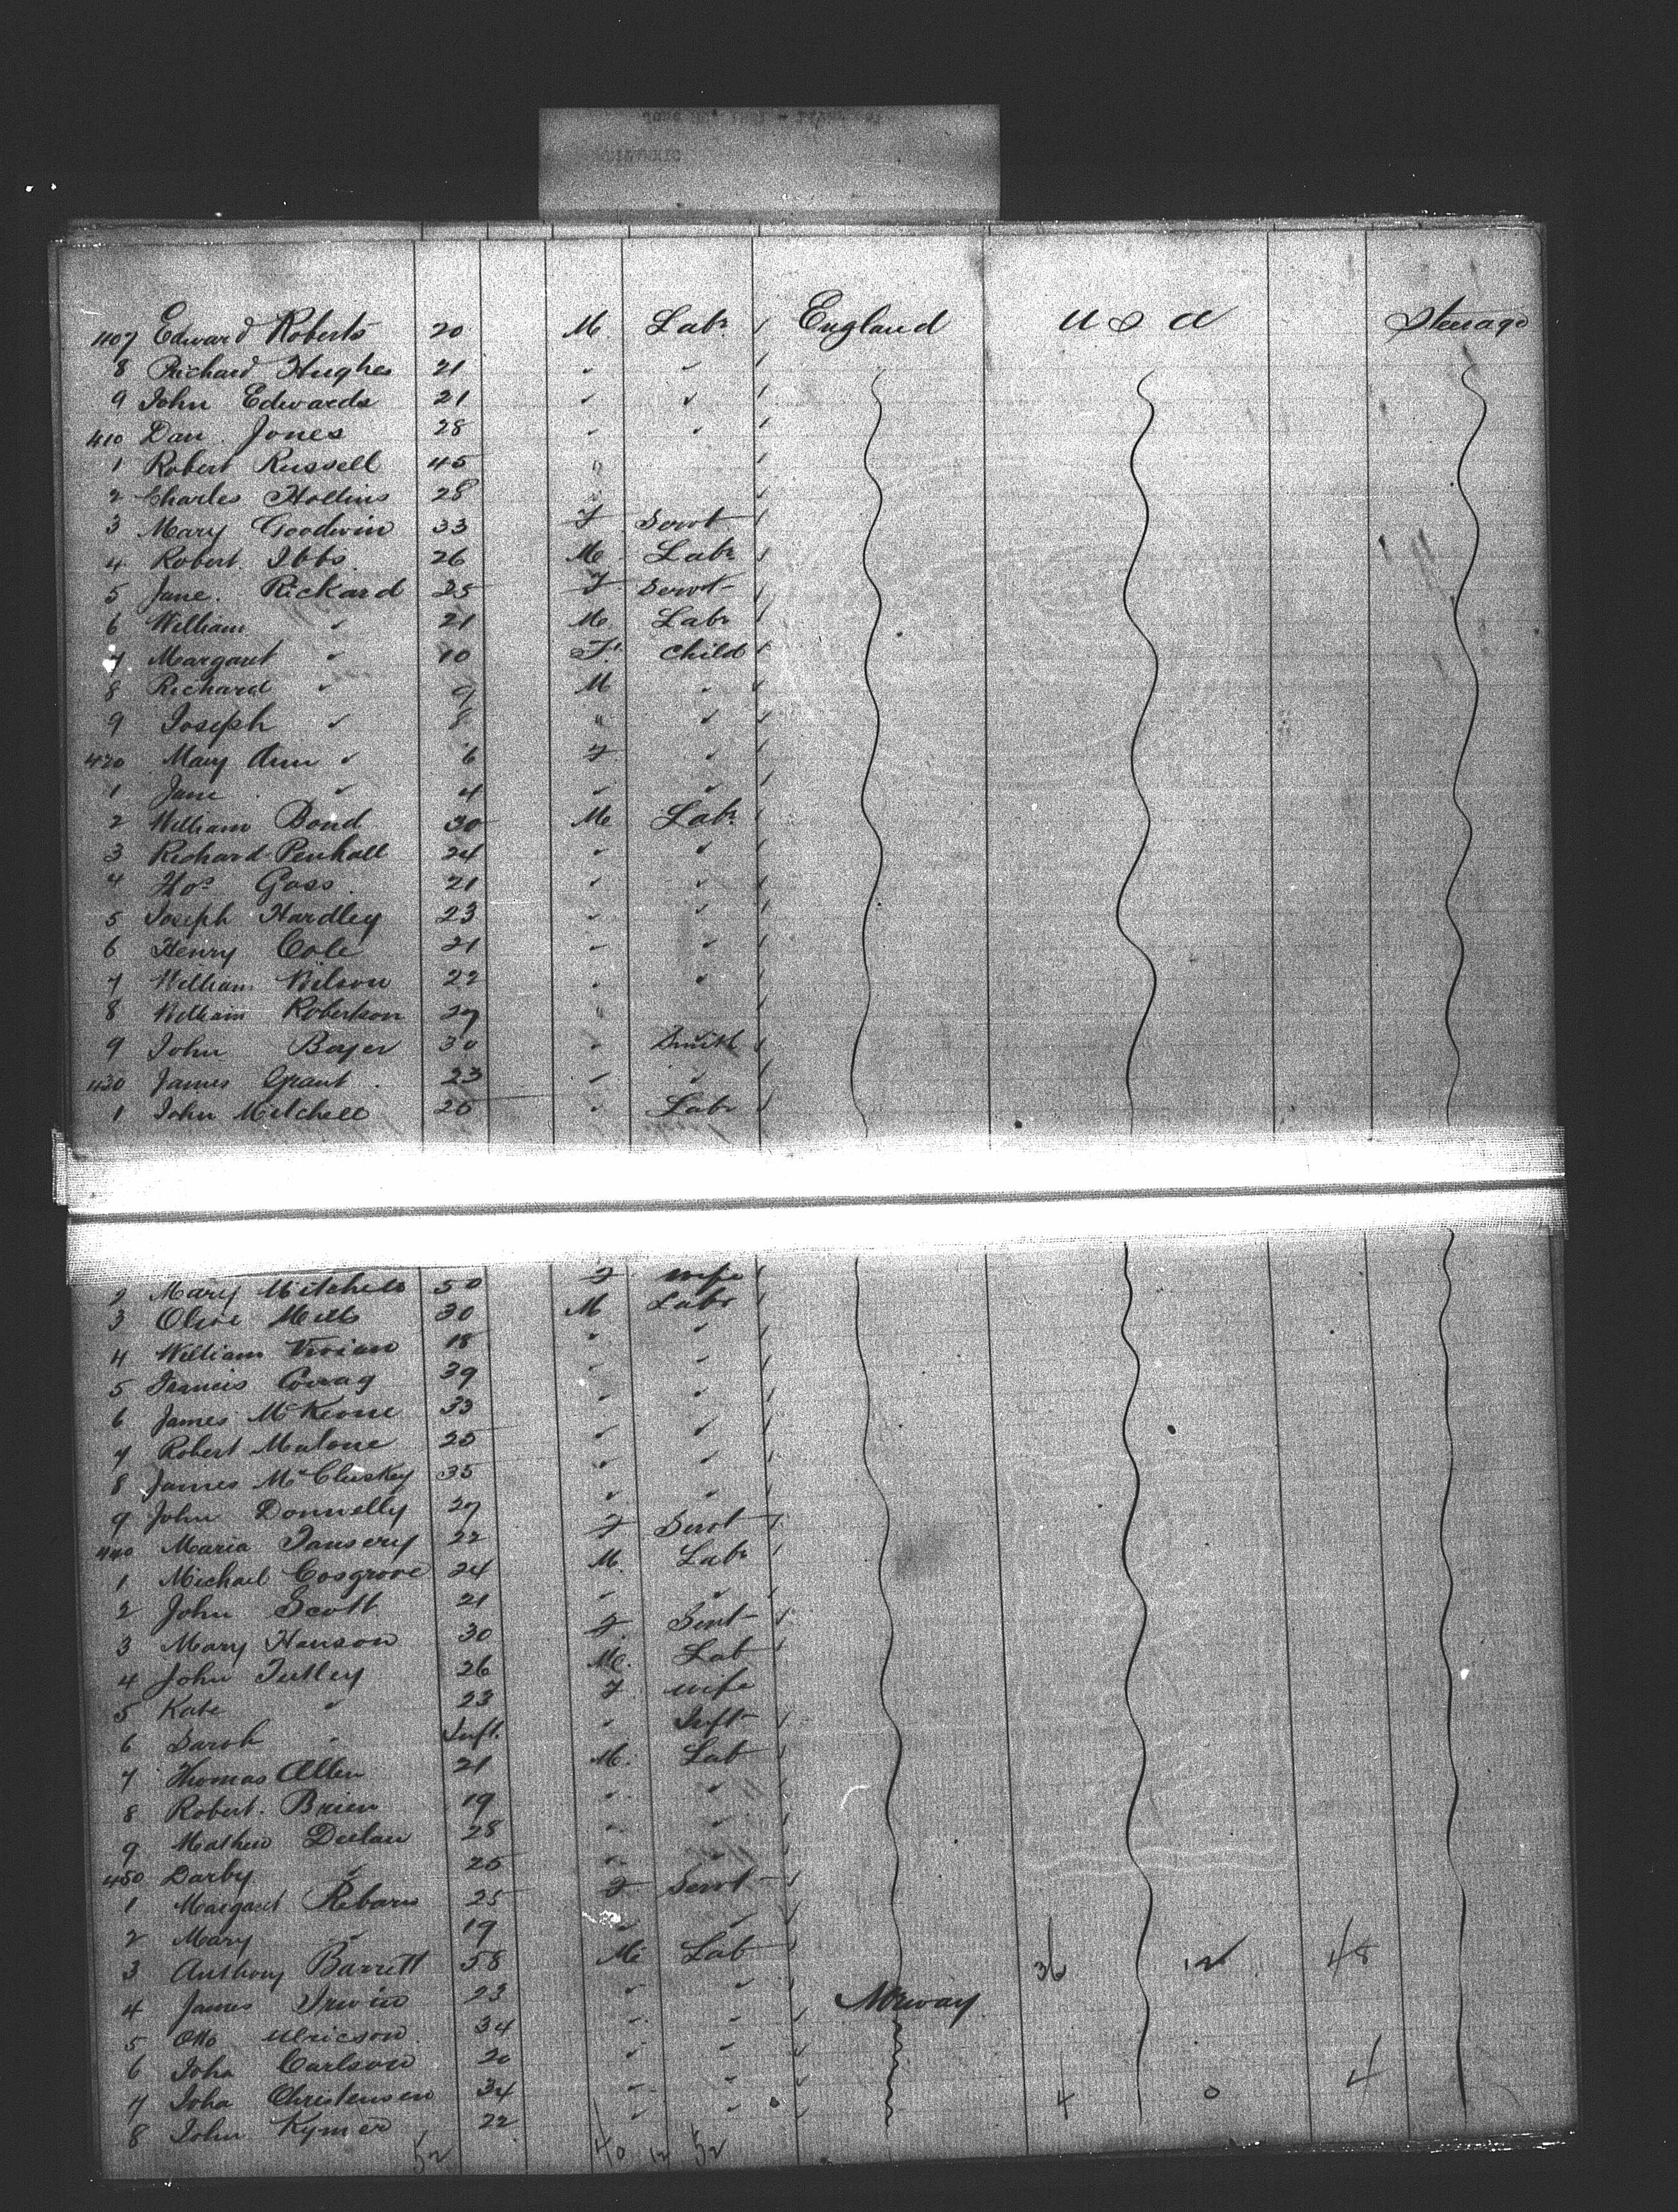 407 Edward Roberts 20 M. Labr England U S A Steerage
8 Richard Hughes 21 " "
9 John Edwards 21 " "
410 Dan. Jones 28 " "
1 Robert Russell 45 "
2 Charles Hollins 28 "
3 Mary Goodwin 33 F Servt
4 Robert Ibbs 26 M Labr
5 Jane Rickard 25 F Servt
6 William " 21 M Labr
7 Margaret " 10 F. Child
8 Richard " 9 M "
9 Joseph " 8 " "
420 Mary Ann " 6 F "
1 Jane " 4 " "
2 William Bond 30 M Labr
3 Richard Penhall 24 " "
4 Thos Goss 21 " "
5 Joseph Hardley 23 " "
6 Henry Cole 21 " "
7 William Wilson 22 " "
8 William Robertson 27 "
9 John Boyer 30 " Smith
430 James Grant 23 " "
1 John Mitchell 26 " Labr
2 Mary Mitchell 50 F wife
3 Mills 30 M Labr
4 William Vivian 18 " "
5 Francis 39 " "
6 James McKeone 33 " "
7 Robert Malone 25 " "
8 James McCluskey 35 " "
9 John Donnelly 27 " "
440 Maria Tansery 22 F Servt
1 Michael Cosgrove 24 M Labr
2 John Scott 21 " "
3 Mary Hanson 30 F Servt
4 John 26 M. Lab
5 Kate " 23 F wife
6 Sarah " Inft. " Inft
7 Thomas Allen 21 M. Lab
8 Robert Brien 19 " "
9 Mathew 28 " "
450 Darby " 25 " "
1 Margaret 25 F Servt
2 Mary " 19 " "
3 Anthony Barrett 58 M Lab 36 12 48
4 James Irwin 23 " " Norway
5 Otto Ulricson 34 " "
6 John Carlson 20 " "
7 John Christensen 34 " " 4 0 4
8 John Kymer 22 " "
52 40 12 52